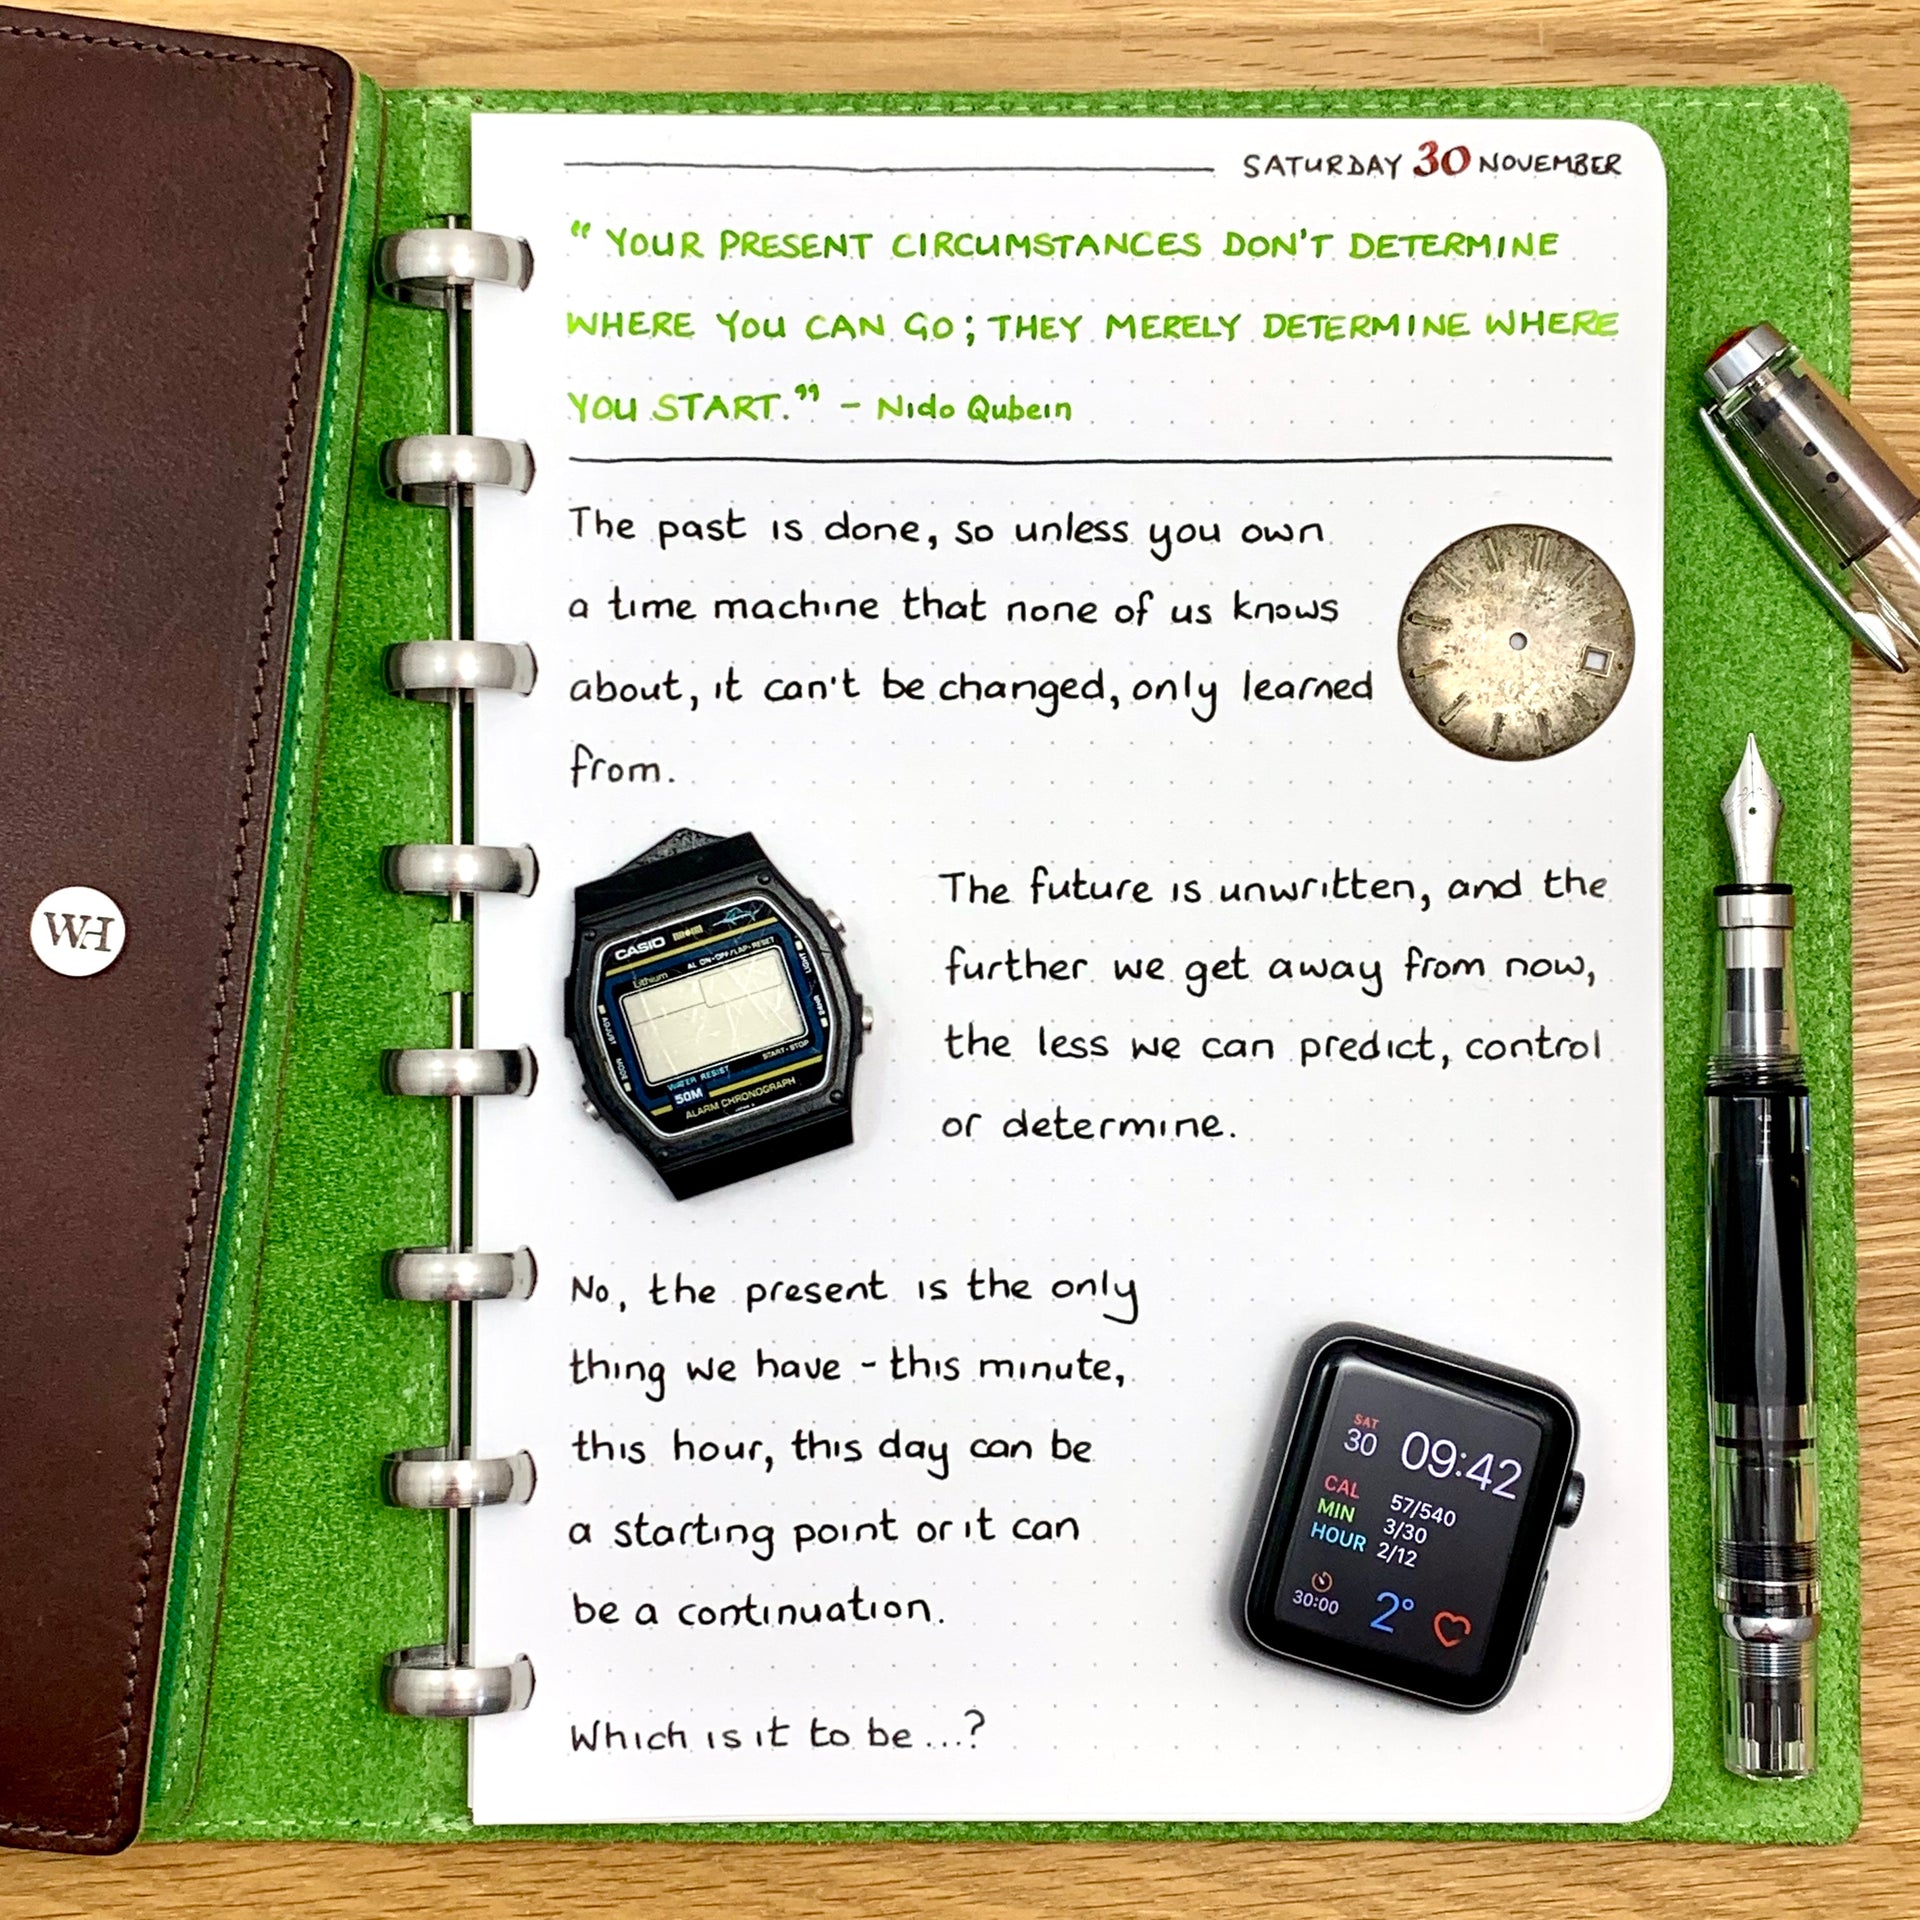 SATURDAY 30 NOVEMBER
“YOUR PRESENT CIRCUMSTANCES DON'T DETERMINE
WHERE YOU CAN GO; THEY MERELY DETERMINE WHERE
YOU START.” - Nido Qubein
The past is done, so unless you own
a time machine that none of us knows
about, it can't be changed, only learned
from.
WH
CASIO
Lithium
AL ON-OFF/LAP-RESET
LIGHT
24HR
ADJUST
MODE
START-STOP
WATER RESIST
50M
ALARM CHRONOGRAPH
The future is unwritten, and the
further we get away from now,
the less we can predict, control
or determine.
No, the present is the only
thing we have - this minute,
this hour, this day can be
a starting point or it can
be a continuation.
Which is it to be...?
SAT
30 09:42
CAL 57/540
MIN 3/30
HOUR 2/12
30:00 2°